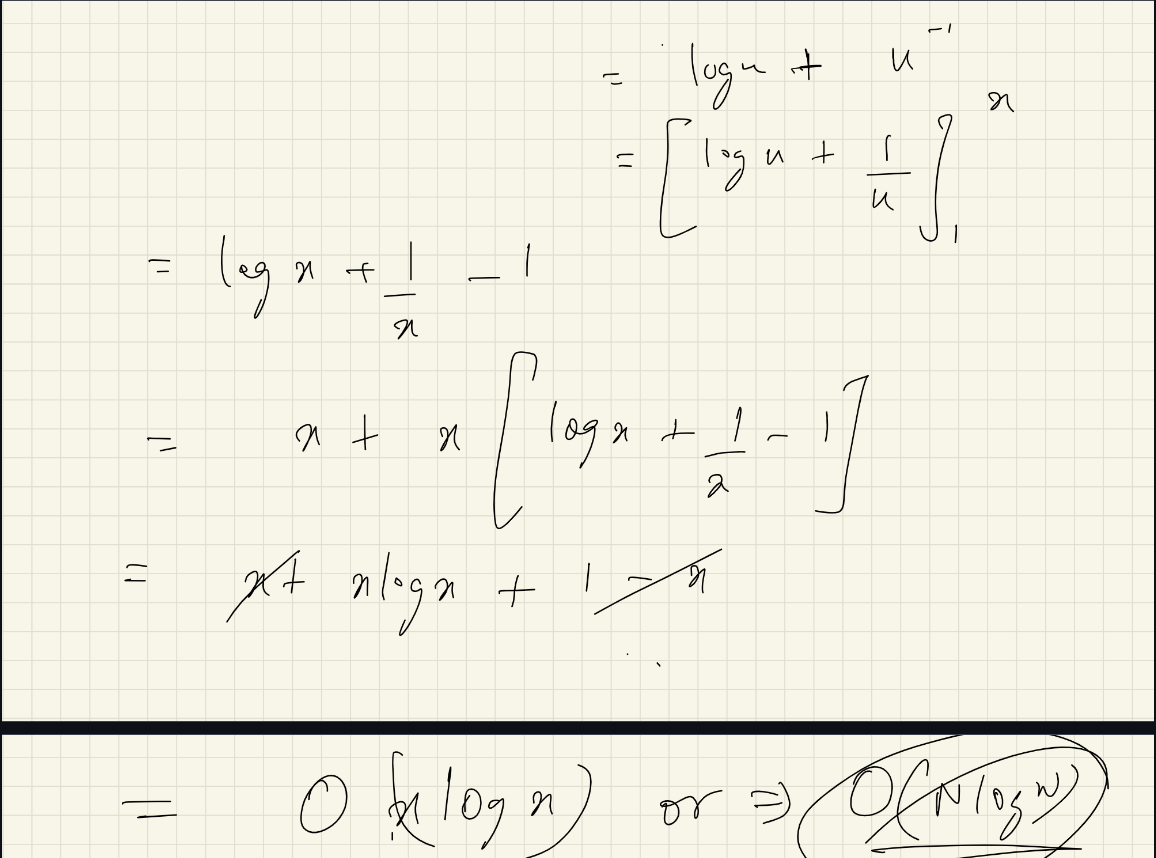 = log u + u⁻¹
= [log u + 1/u]₁ˣ
= log x + 1/x - 1
= x + x [log x + 1/2 - 1]
= x + x log x + 1 - x
= O(x log x) or ⇒ O(N log N)